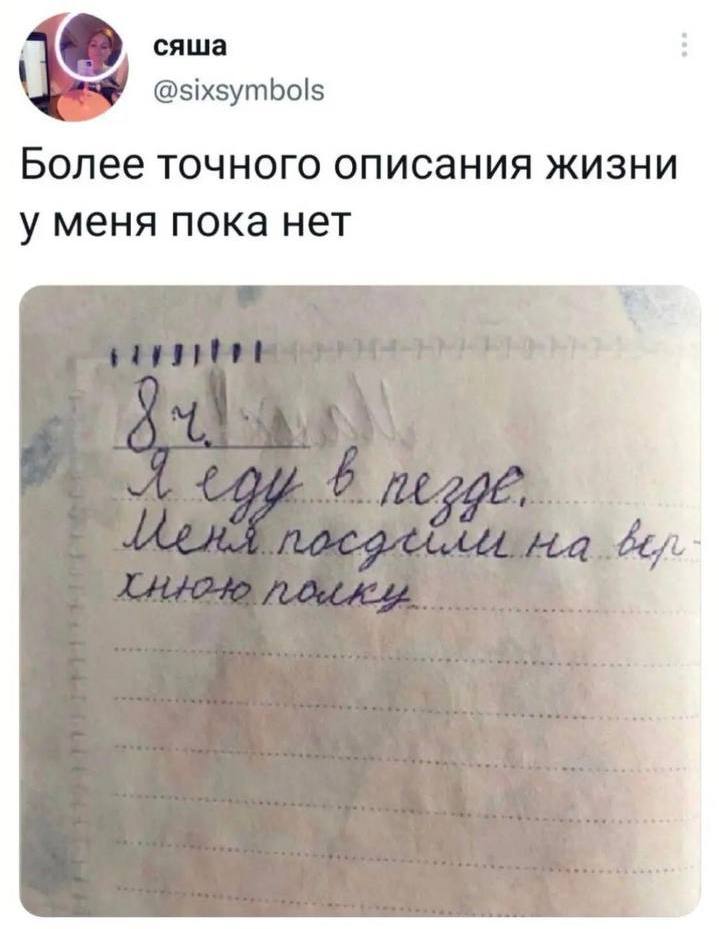 сяша
@sixsymbols
Более точного описания жизни
у меня пока нет
8 ч.
Я еду в пезде.
Меня посдили на вер-
хнюю полку